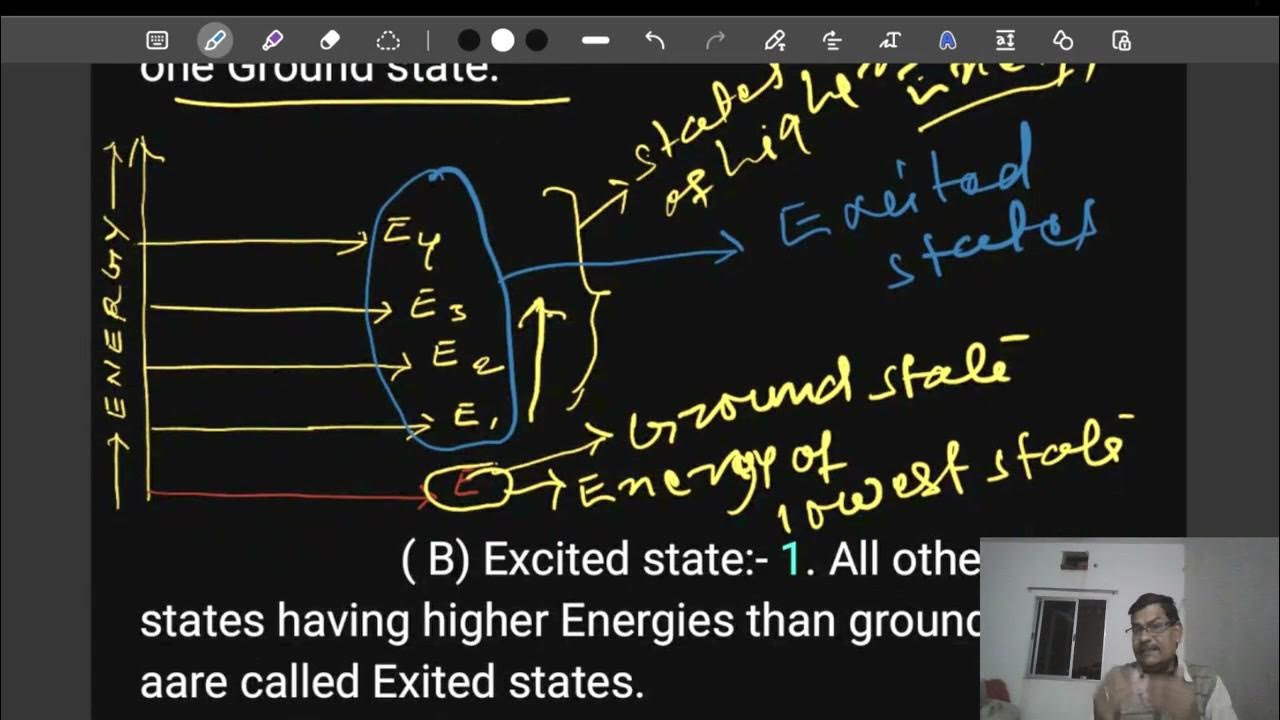 one Ground state.
states
of higher
energy
Exited
states
ENERGY
E4
E3
E2
E1
E
Ground state
Energy of
lowest state
( B) Excited state:- 1. All othe
states having higher Energies than ground
aare called Exited states.